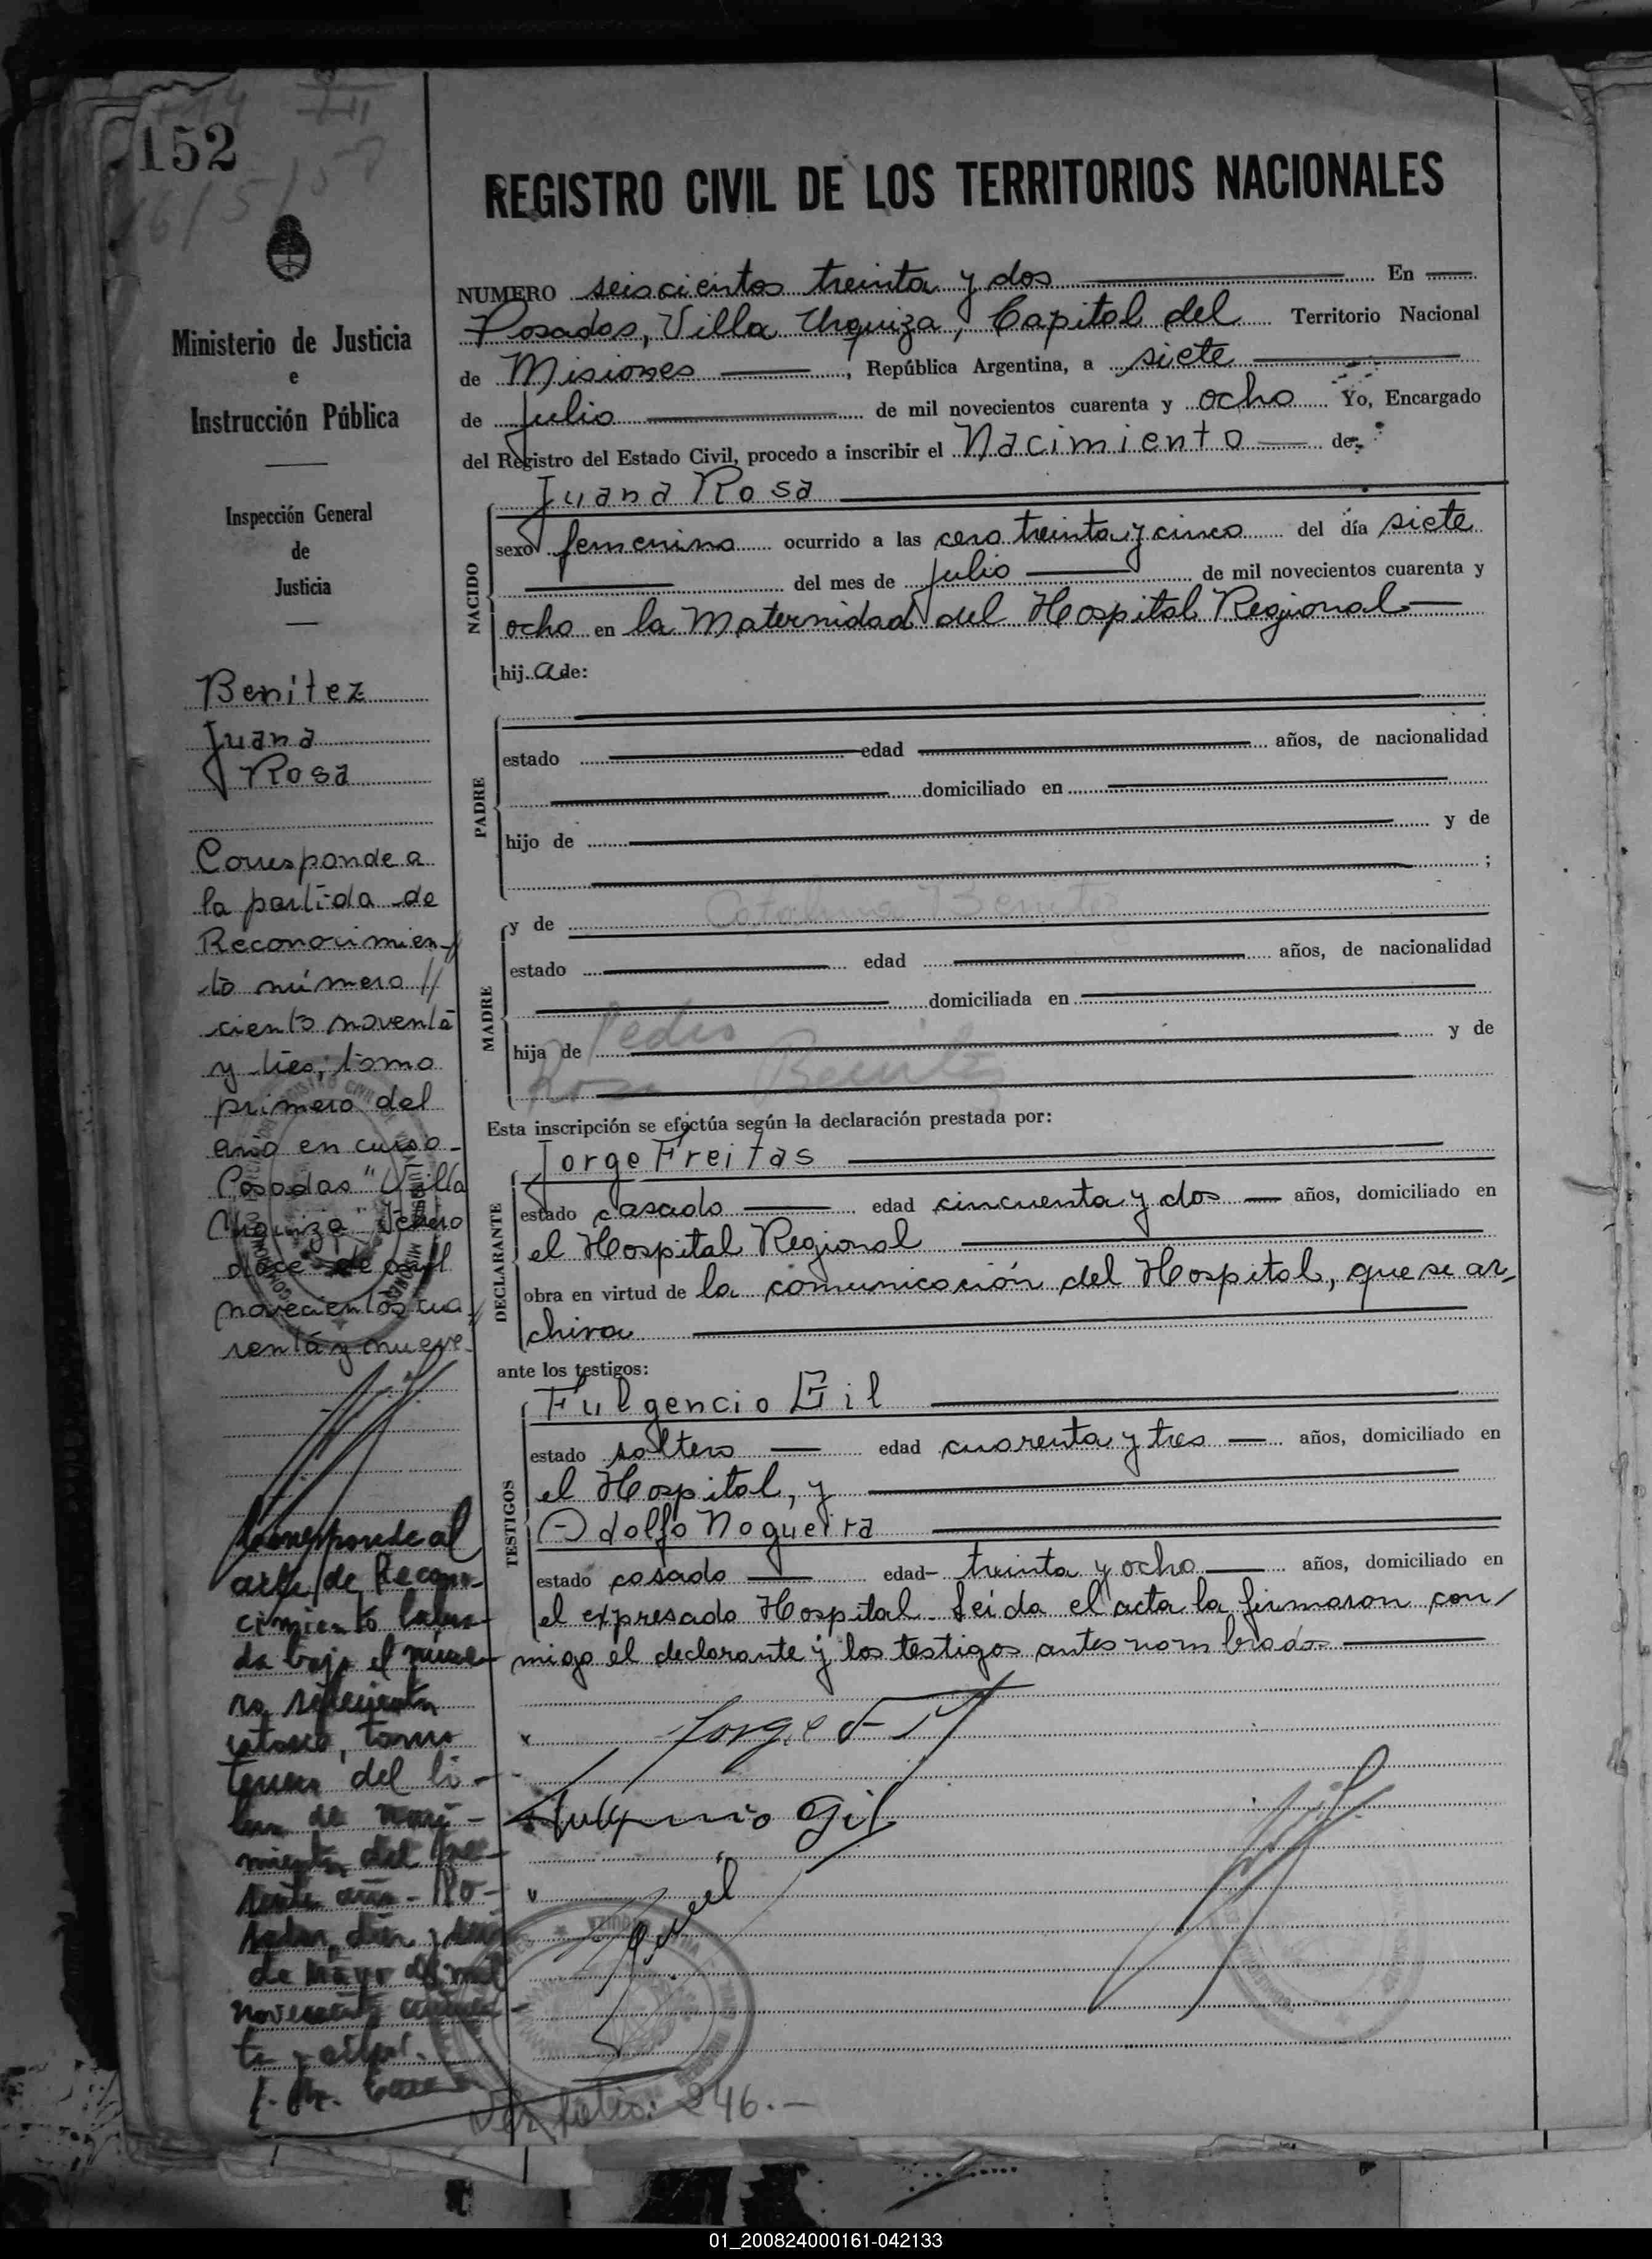 152
16/5/57
REGISTRO CIVIL DE LOS TERRITORIOS NACIONALES
Ministerio de Justicia
e
Instrucción Pública
Inspección General
de
Justicia
Benítez
Juana
Rosa
Corresponde a
la partida de
Reconocimien-
to número //
ciento noventa
y tres, tomo
primero del
año en curso -
Posadas "Villa
Urquiza"
doce de mil
novecientos cua
renta y nueve.
Corresponde al
acta de Recono-
cimiento labra-
da bajo el núme-
ro setecientos
catorce, tomo
tercero del li-
bro de naci-
mientos del pre-
sente año - Po-
sadas, diez y seis
de Mayo de mil
novecientos cincuen-
ta y
NUMERO seiscientos treinta y dos En
Posadas, Villa Urquiza, Capital del Territorio Nacional
de Misiones , República Argentina, a siete
de julio de mil novecientos cuarenta y ocho Yo, Encargado
del Registro del Estado Civil, procedo a inscribir el Nacimiento de:
Juana Rosa
NACIDO
sexo femenino ocurrido a las cero treinta y cinco del día siete
del mes de julio de mil novecientos cuarenta y
ocho en la Maternidad del Hospital Regional
hij a de:
PADRE
estado edad años, de nacionalidad
domiciliado en
hijo de y de
;
MADRE
y de Catalina Benitez
estado edad años, de nacionalidad
domiciliada en
hija de Pedro y de
Rosa Benitez
Esta inscripción se efectúa según la declaración prestada por:
Jorge Freitas
DECLARANTE
estado casado edad cincuenta y dos años, domiciliado en
el Hospital Regional
obra en virtud de la comunicación del Hospital, que se ar-
chiva
ante los testigos:
Fulgencio Gil
TESTIGOS
estado soltero edad cuarenta y tres años, domiciliado en
el Hospital, y
Adolfo Nogueira
estado casado edad treinta y ocho años, domiciliado en
el expresado Hospital. Leída el acta la firmaron con/
migo el declarante y los testigos antes nombrados
Jorge F
Fulgencio Gil
Ver folio: 246.-
01_200824000161-042133